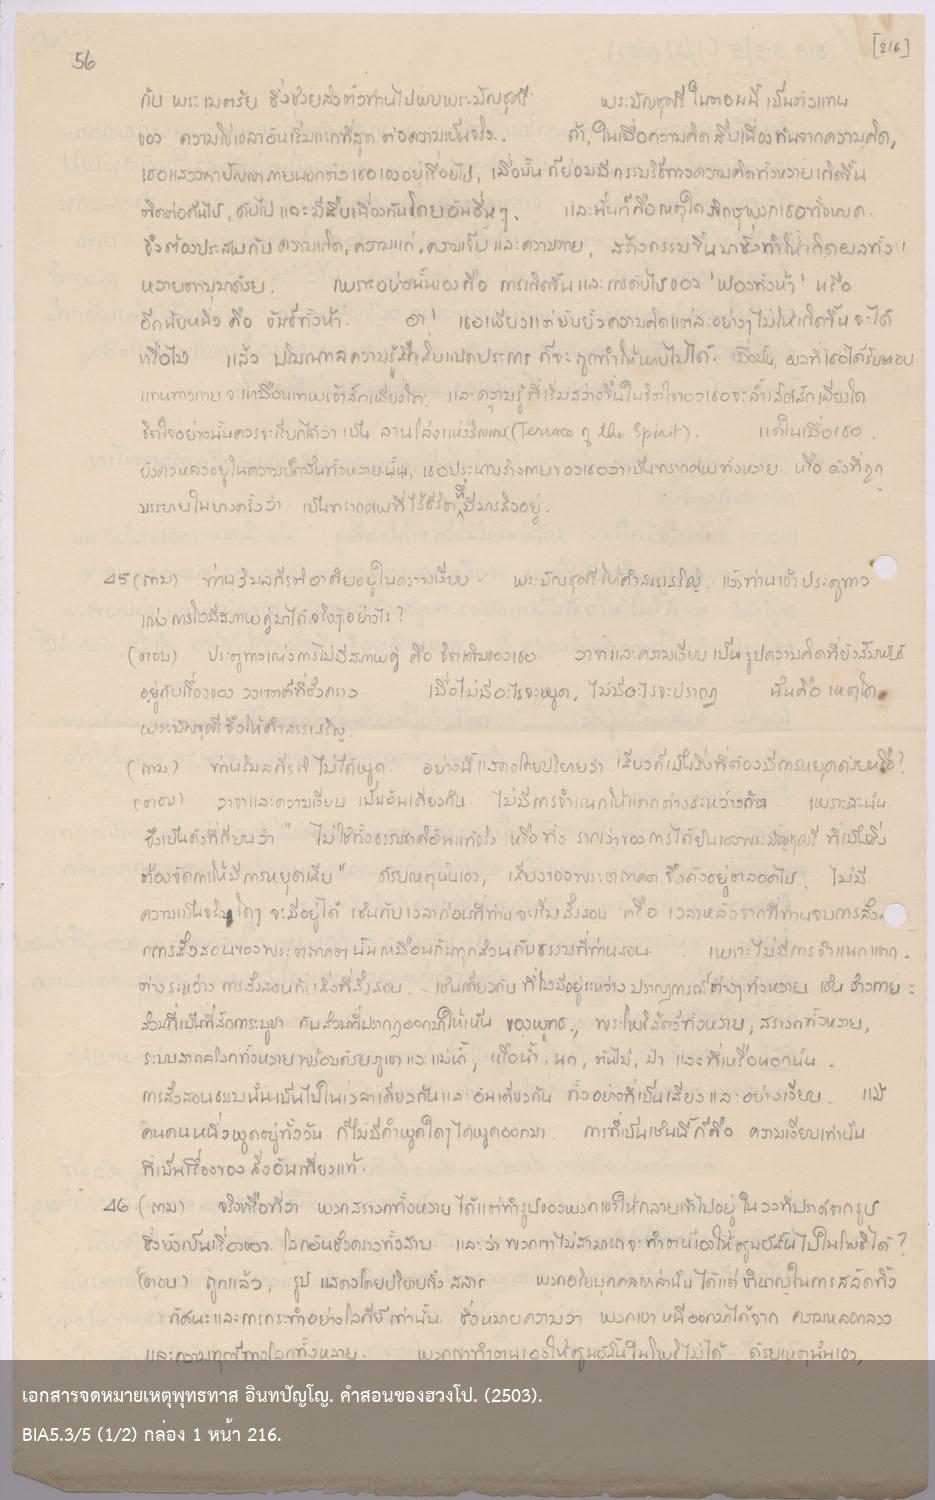 56
[216]
กับ พระเมตรัย ซึ่งช่วยส่งตัวท่านไปพบพระมัญชุศรี พระมัญชุศรี ในตอนนี้ เป็นตัวแทน
ของ ความโง่เขลาอันเริ่มแรกที่สุด ต่อความเป็นจริง. ถ้า, ในเมื่อความคิด สืบเนื่องกันจากความคิด,
เธอแสวงหาปัญญาภายนอกตัวเธอเองอยู่เรื่อยไป, เมื่อนั้น ก็ย่อมมี กรรมวิธีทางความคิดทั้งหลาย เกิดขึ้น
ติดต่อกันไป, ดับไป และมีสืบเนื่องกันโดยอันอื่นๆ. และนั่นก็คือเหตุใด ภิกษุพวกเธอทั้งหมด
จึงต้องประสพกับ ความเกิด, ความแก่, ความเจ็บ และความตาย, สร้างกรรมขึ้นมาซึ่งทำให้เกิดผลทั้ง
หลายตามมาด้วย. เพราะอย่างนั้นเองคือ การเกิดขึ้นและการดับไปของ 'ฟองทั้งห้า' หรือ
อีกนัยหนึ่ง คือ ขันธ์ทั้งห้า. อา! เธอเพียงแต่ยับยั้งความคิดแต่ละอย่างๆไม่ให้เกิดขึ้น จะได้
หรือไม่ แล้ว ปริมณฑลความรู้สึกสิบแปดประการ ก็จะถูกทำให้หายไปได้. เมื่อนั้น, ผลที่เธอได้รับตอบ
แทนทางกาย จะเหมือนเทพเจ้าสักเพียงใด และความรู้ที่เริ่มสว่างขึ้นในจิตใจของเธอจะล้ำเลิศสักเพียงใด
จิตใจอย่างนั้นควรจะเรียกได้ว่า เป็น ลานโล่งแห่งวิญญาณ (Terrace of the Spirit). แต่ในเมื่อเธอ
ยังคงหลงอยู่ในความนึกคิดทั้งหลายนั้น, เธอประณามร่างกายของเธอว่าเป็นซากศพทั้งหลาย หรือ ดังที่ถูก
บรรยายในบางครั้งว่า เป็นซากศพที่ไร้ชีวิตที่มีมารสิงอยู่.
45 (ถาม) ท่านวิมลกีรติอาศัยอยู่ในความเงียบ. พระมัญชุศรีให้คำสรรเสริญ, แล้วท่านเข้าประตูทาง
แห่งการไม่มีสภาพคู่มาได้จริงๆอย่างไร?
(ตอบ) ประตูทางแห่งการไม่มีสภาพคู่ คือ จิตเดิมของเธอ วาจาและความเงียบ เป็นรูปความคิดที่ยังสัมพันธ์
อยู่กับเรื่องของ วงเขตต์ที่ชั่วคราว เมื่อไม่มีอะไรจะพูด, ไม่มีอะไรจะปรากฏ นั่นคือ เหตุใด
พระมัญชุศรีจึงให้คำสรรเสริญ.
(ถาม) ท่านวิมลกีรติ ไม่ได้พูด. อย่างนี้ แสดงโดยปริยายว่า เสียงก็เป็นสิ่งที่ต้องมีการหยุดด้วยหรือ?
(ตอบ) วาจาและความเงียบ เป็นอันเดียวกัน ไม่มีการจำแนกให้แตกต่างระหว่างกัน เพราะฉะนั้น
จึงเป็นดังที่เขียนว่า " ไม่ใช่ทั้งธรรมชาติอันแท้จริง หรือ ทั้ง รากเง่าของการได้ยินของพระมัญชุศรี ที่เป็นสิ่ง
ต้องจัดการให้มีการหยุดเสีย" ด้วยเหตุนั้นเอง, เสียงของพระตถาคต จึงดังอยู่ตลอดไป, ไม่มี
ความเป็นจริงใดๆ จะมีอยู่ได้ เช่นกับ เวลาก่อนที่ท่านจะเริ่มสั่งสอน หรือ เวลาหลังจากที่ท่านจบการสั่ง
การสั่งสอนของพระตถาคต นั้นเหมือนกันทุกส่วนกับธรรมที่ท่านสอน เพราะไม่มีการจำแนกแตก
ต่างระหว่าง การสั่งสอนกับสิ่งที่สั่งสอน. เช่นเดียวกับ ที่ไม่มีอยู่ระหว่าง ปรากฏการณ์ต่างๆทั้งหลาย เช่น ร่างกาย
ส่วนที่เป็นที่สักการะบูชา กับส่วนที่ปรากฏออกมาให้เห็น ของพุทธะ, พระโพธิสัตว์ทั้งหลาย, สาวกทั้งหลาย,
ระบบสากลโลกทั้งหลายพร้อมด้วยภูเขาและแม่น้ำ, หรือน้ำ, นก, ต้นไม้, ป่า และที่เหลือนอกนั้น.
การสั่งสอนธรรมนั้นเป็นไปในเวลาเดียวกันและอันเดียวกัน ทั้งอย่างที่เป็นเสียงและอย่างเงียบ. แม้
คนคนหนึ่งพูดอยู่ทั้งวัน ก็ไม่มีคำพูดใดๆได้พูดออกมา. การที่เป็นเช่นนี้ ก็คือ ความเงียบเท่านั้น
ที่เป็นเรื่องของ สิ่งอันเที่ยงแท้.
46 (ถาม) จริงหรือที่ว่า พวกสาวกทั้งหลาย ได้แต่ทำรูปของพวกเขาให้กลายเข้าไปอยู่ใน วงที่ปราศจากรูป
ซึ่งยังเป็นเรื่องของ โลกอันชั่วคราวทั้งสาม และว่า พวกเขาไม่สามารถจะทำตนเองให้สูญสิ้นไปในโพธิได้?
(ตอบ) ถูกแล้ว, รูป แสดงโดยปริยายถึง สสาร พวกอริยบุคคลเหล่านั้น ได้แต่ ชำนาญในการสลัดทิ้ง
ทัศนะและการกระทำอย่างโลกีย์เท่านั้น ซึ่งหมายความว่า พวกเขา หนีออกมาได้จาก ความหลอกลวง
และความทุกข์ทางโลกทั้งหลาย. พวกเขาทำตนเองให้สูญสิ้นในโพธิไม่ได้ ด้วยเหตุนั้นเอง,
เอกสารจดหมายเหตุพุทธทาส อินทปัญโญ. คำสอนของฮวงโป. (2503).
BIA5.3/5 (1/2) กล่อง 1 หน้า 216.